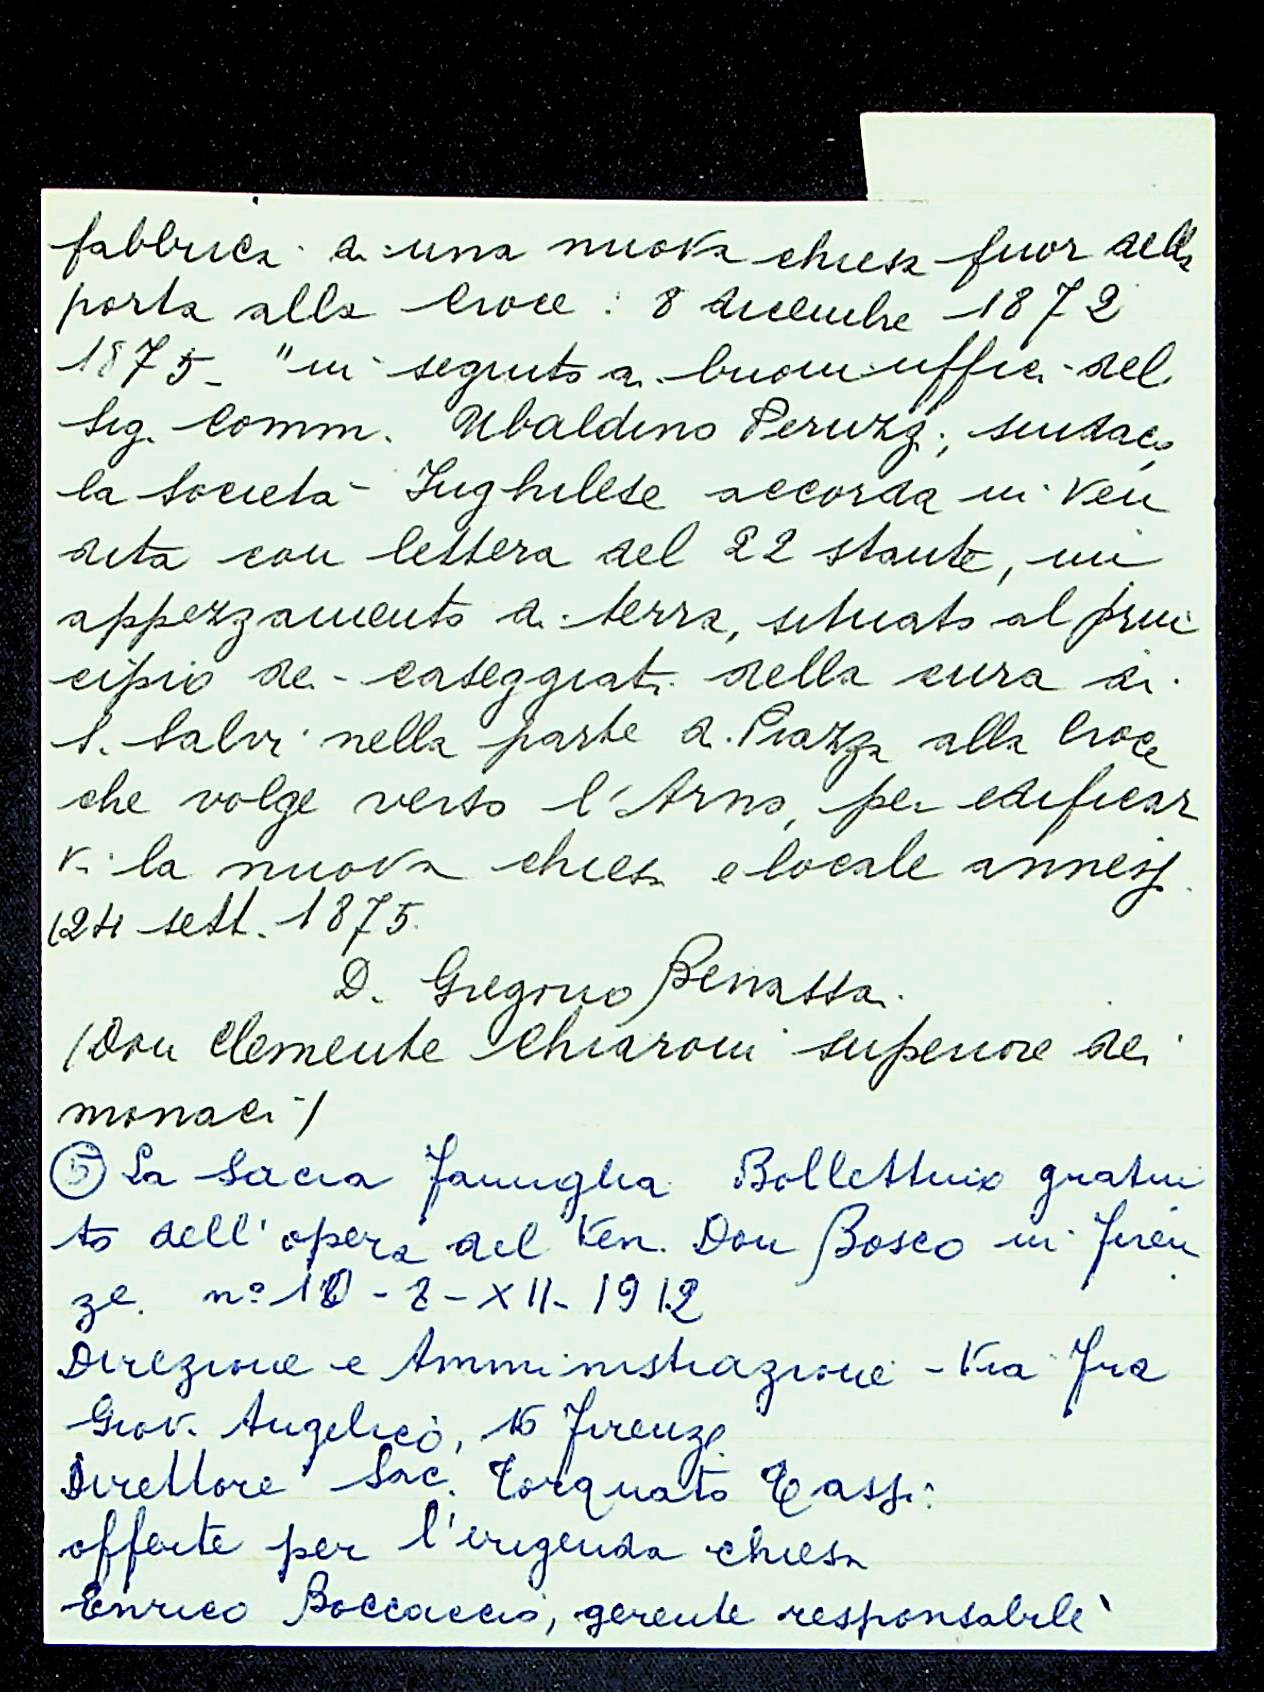 fabbrica di una nuova chiesa fuor della
porta alla Croce: 8 dicembre 1872
1875 - "in seguito ai buoni uffici del
Sig. Comm. Ubaldino Peruzzi, sindaco,
la Società Inghilese accorda in ven
dita con lettera del 22 stante, un
appezzamento di terra, situato al prin
cipio dei caseggiati della cura di
S. Salvi nella parte di Piazza alla Croce
che volge verso l'Arno, per edificar
vi la nuova chiesa e locale annesso
(24 sett. 1875.
D. Gregorio
(Don Clemente Chiaroni superiore dei
monaci)
⑤ La Sacra Famiglia Bollettino gratui
to dell'opera del Ven. Don Bosco in Firen
ze. XII - 1912
Direzione e Amministrazione - Via Fra
Giov. Angelico, 16 Firenze
Direttore Sac. Torquato Tassi:
offerte per l'erigenda chiesa
Enrico Boccaccio, gerente responsabile